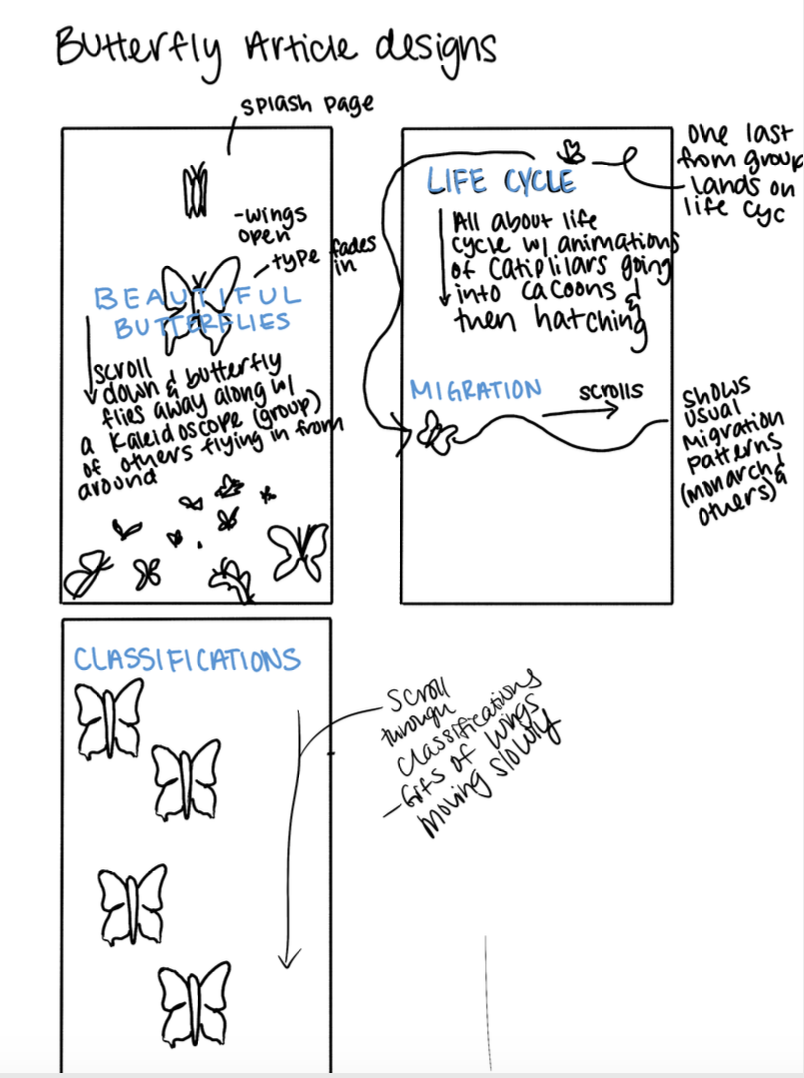 Butterfly Article designs
splash page
-wings
open
-type fades
in
BEAUTIFUL
BUTTERFLIES
scroll
down & butterfly
flies away along w/
a kaleidoscope (group)
of others flying in from
around
one last
from group
lands on
life cyc
LIFE CYCLE
All about life
cycle w/ animations
of catiplilars going
into cacoons &
then hatching
MIGRATION
scrolls
shows
usual
migration
patterns
(monarch &
others)
CLASSIFICATIONS
scroll
through
classifications
-Gifs of wings
moving slowly